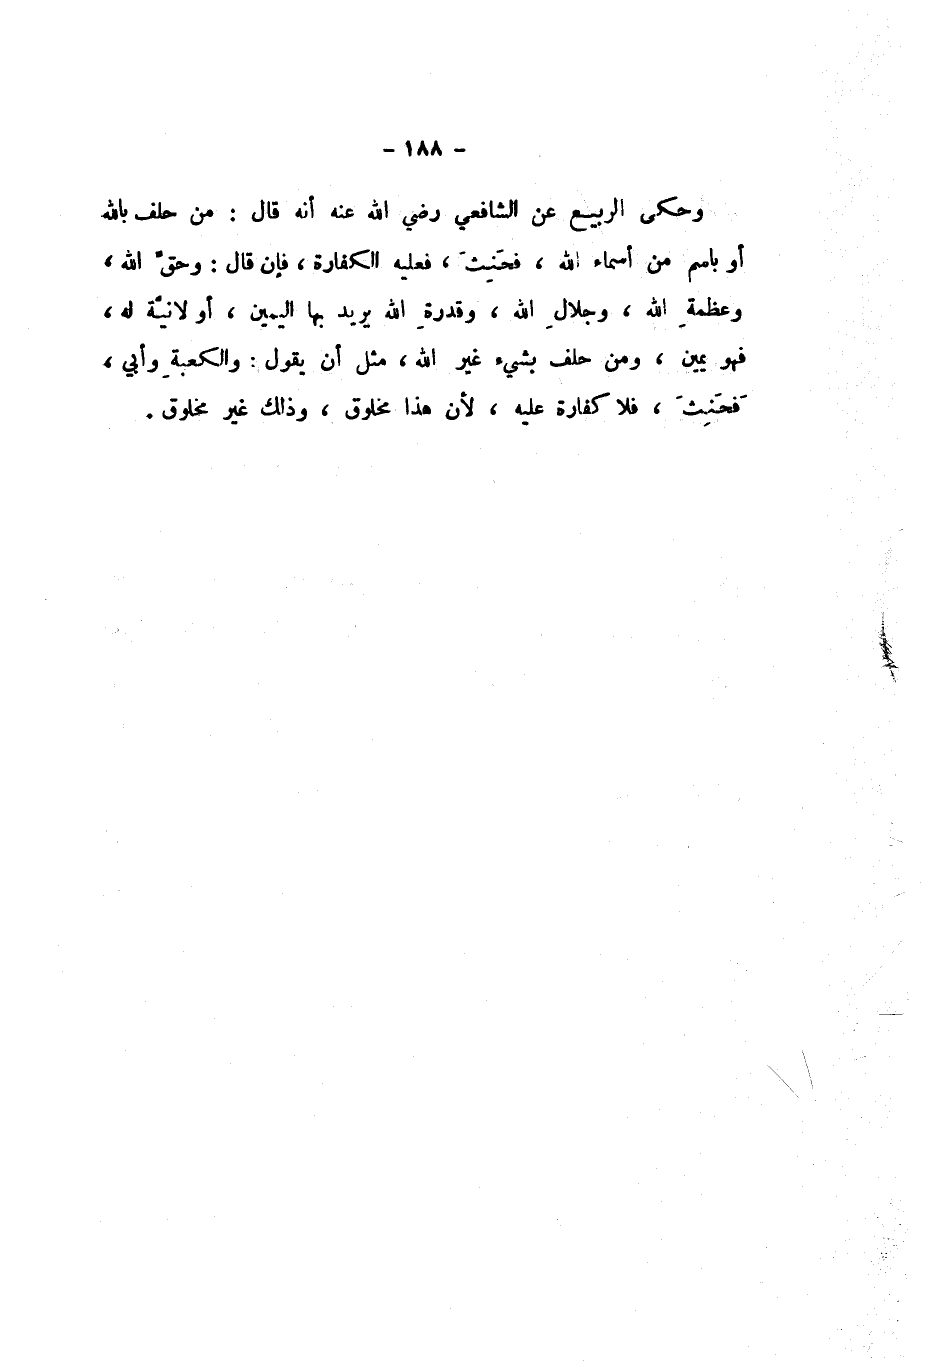 - ١٨٨ -
وحكى الربيع عن الشافعي رضي الله عنه أنه قال : من حلف بالله
أو باسم من أسماء الله ، فحَنِثَ ، فعليه الكفارة ، فإن قال : وحقّ الله ،
وعظمةِ الله ، وجلالِ الله ، وقدرةِ الله يريد بها اليمين ، أو لانيَّة له ،
فهو يمين ، ومن حلف بشيء غير الله ، مثل أن يقول : والكعبةِ وأبي ،
فَحَنِثَ ، فلا كفارة عليه ، لأن هذا مخلوق ، وذلك غير مخلوق .